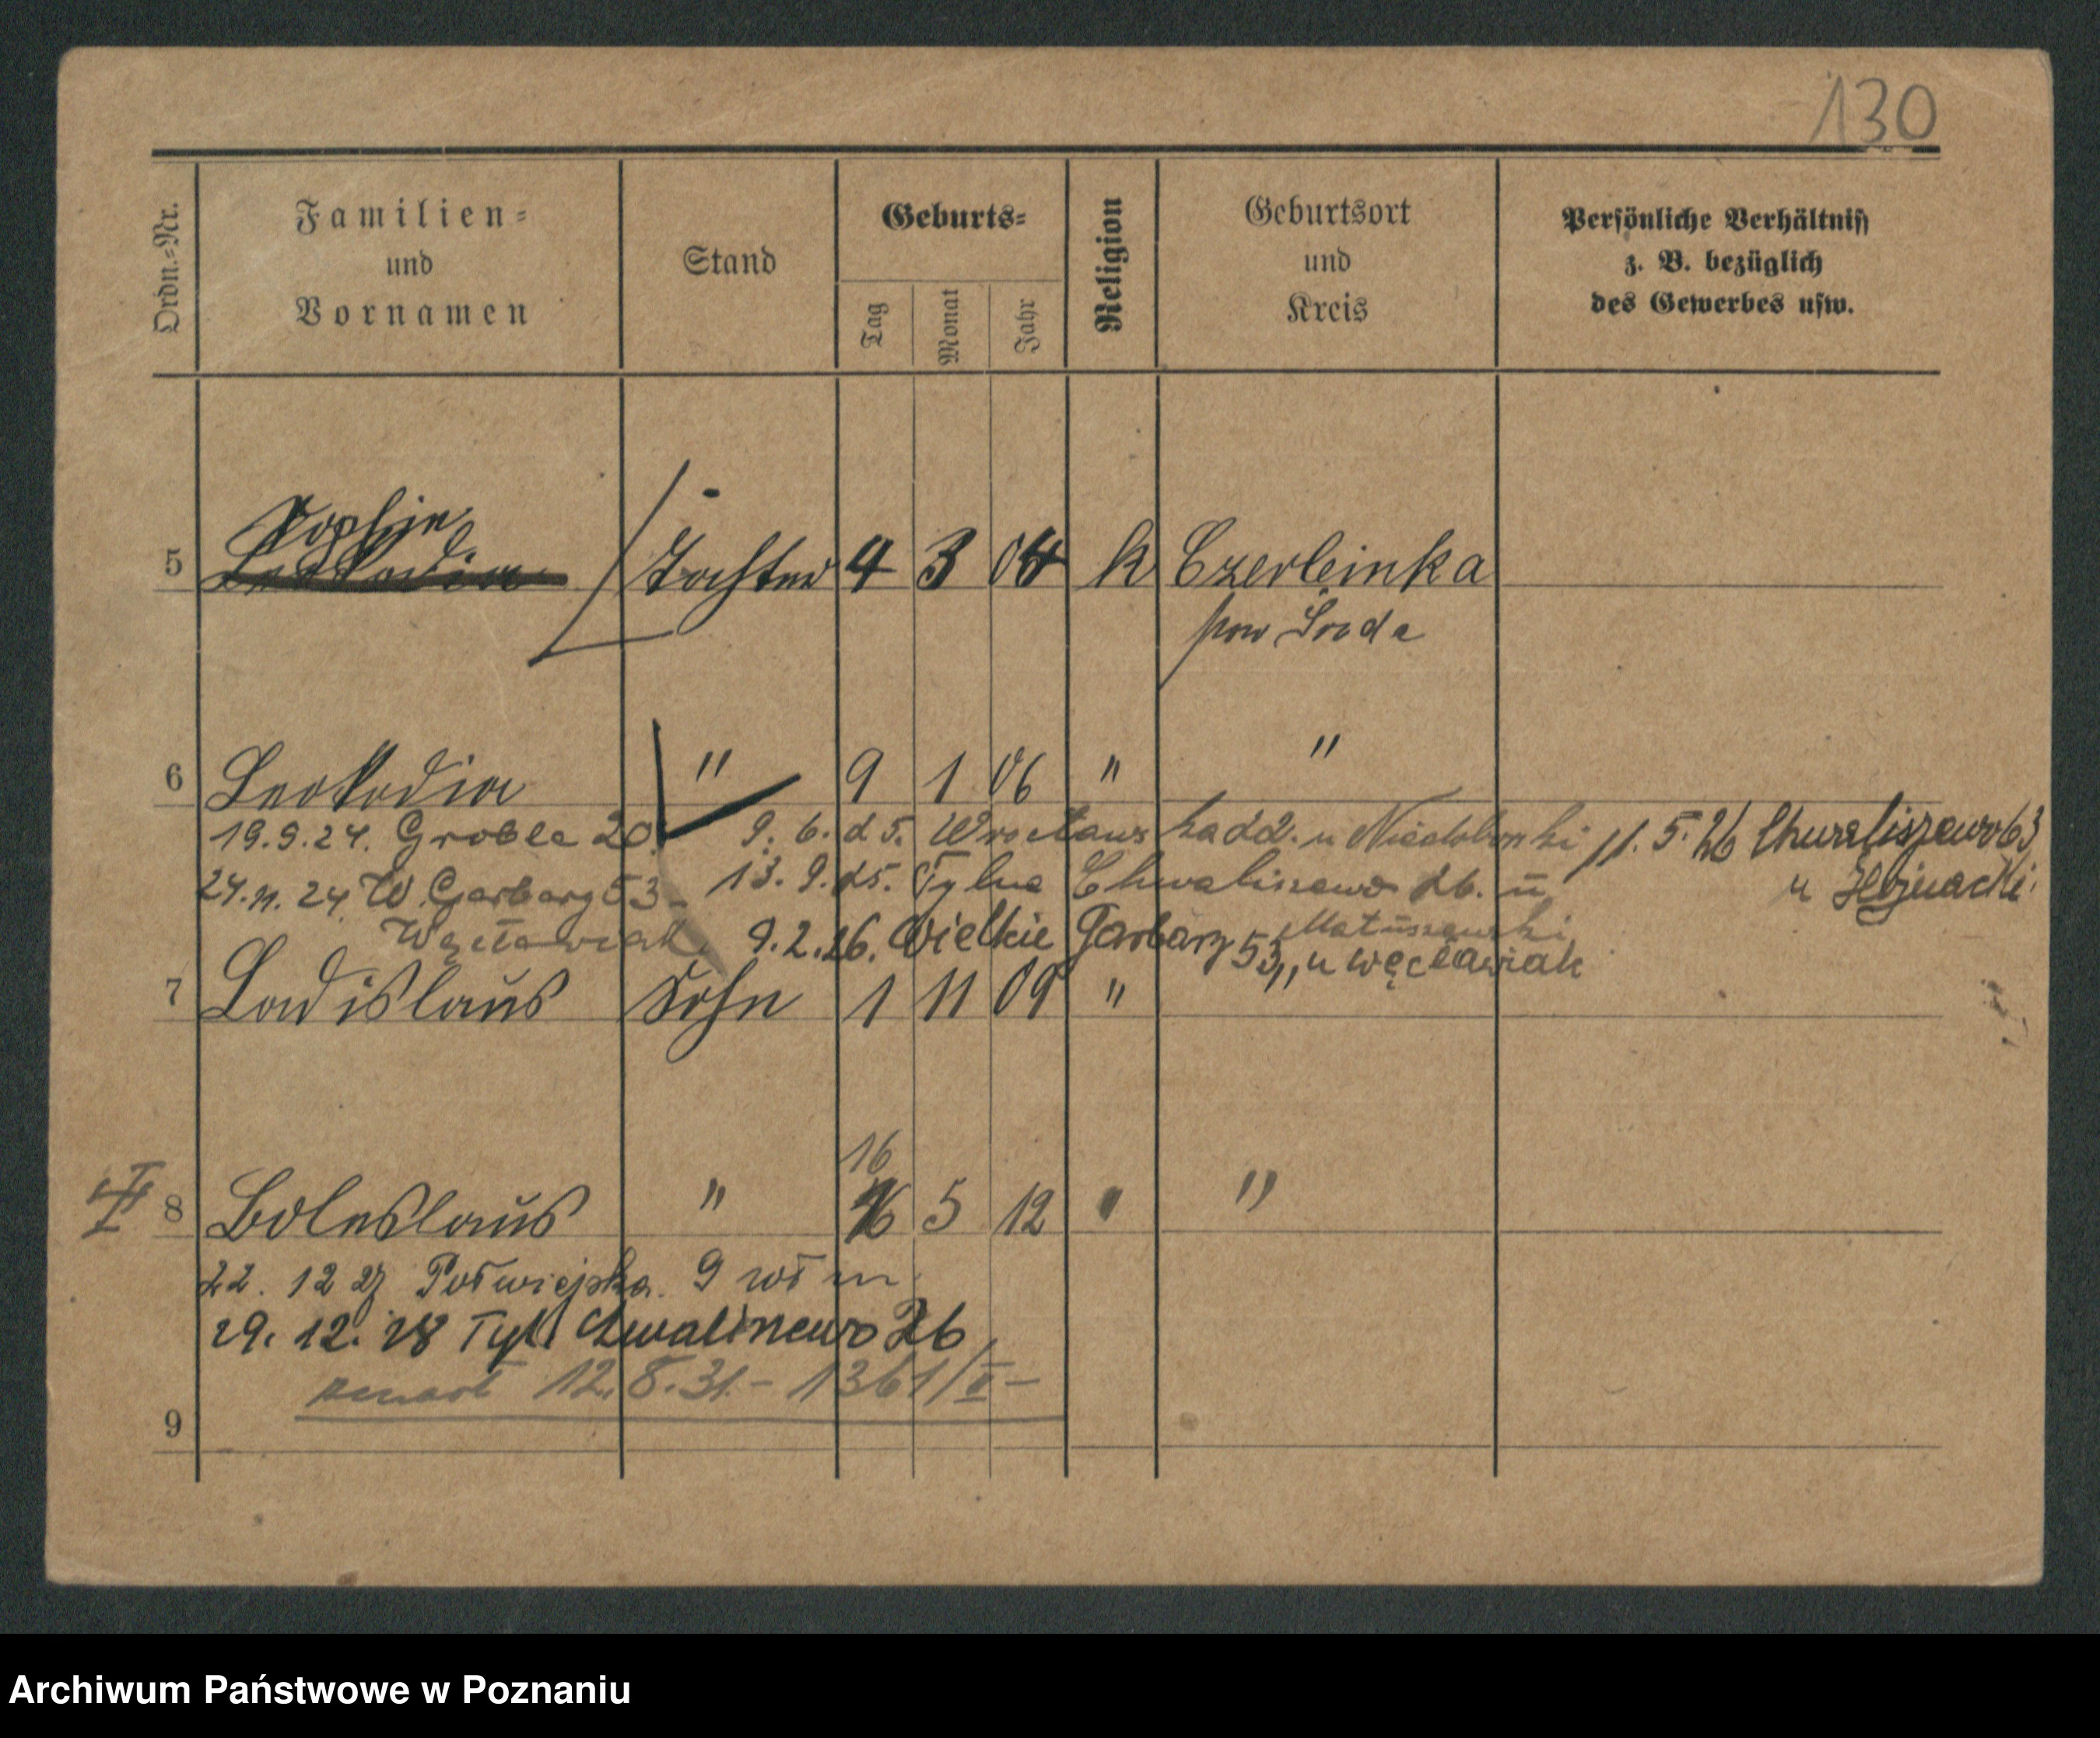 130
Ordn.-Nr.
Familien-
und
Vornamen
Stand
Geburts-
Tag
Monat
Jahr
Religion
Geburtsort
und
Kreis
Persönliche Verhältniss
z. B. bezüglich
des Gewerbes usw.
Sophie
5 Leokadia Tochter 4 3 04 k Czerleinka
pow Środa
6 Leokadia " 9 1 06 " "
19.9.24. Grobla 20. 9. 6. 25. Wrocław
11. 5. 26 Chwaliszewo 63
24.11.24 W. Garbary 53 - 13. 9. 25. Tylne Chwaliszewo 26. u
Matuszewski
Węcławiak 9.2.26. Wielkie Garbary 53,, u węcławiak
7 Ladislaus Sohn 1 11 09 "
16
8 Boleslaus " 5 12 " "
22. 12 27 Półwiejska 9 wł m
29. 12. 28 Tyl. Chwaliszewo 26
12.8.31. - 1361/II -
9
Archiwum Państwowe w Poznaniu